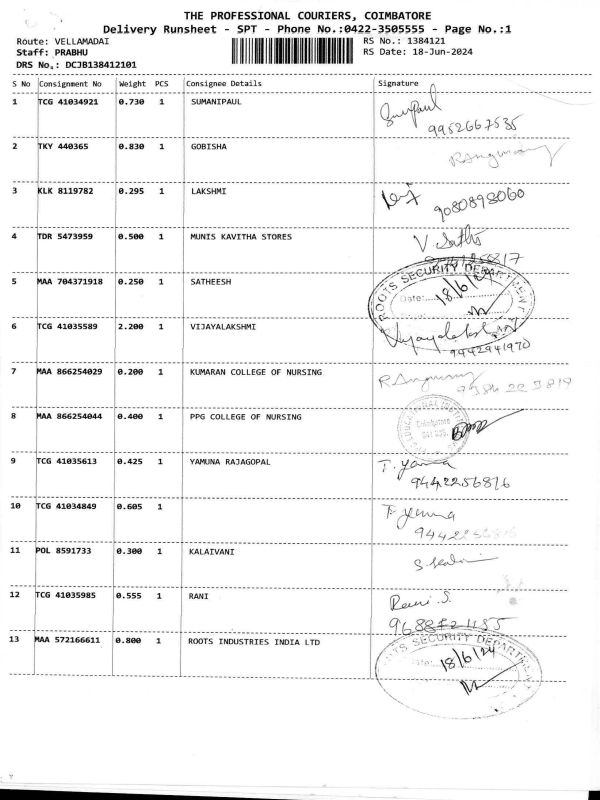 THE PROFESSIONAL COURIERS, COIMBATORE
Delivery Runsheet - SPT - Phone No.:0422-3505555 - Page No.:1
Route: VELLAMADAI RS No.: 1384121
Staff: PRABHU RS Date: 18-Jun-2024
DRS No.: DCJB138412101
S No Consignment No Weight PCS Consignee Details Signature
1 TCG 41034921 0.730 1 SUMANIPAUL
9952667535
2 TKY 440365 0.830 1 GOBISHA
3 KLK 8119782 0.295 1 LAKSHMI
9080898060
4 TDR 5473959 0.500 1 MUNIS KAVITHA STORES
V. Sathis
ROOTS SECURITY DEPARTMENT
5 MAA 704371918 0.250 1 SATHEESH
Date: 18/6/24
6 TCG 41035589 2.200 1 VIJAYALAKSHMI
Vijayalakshmi
9442941970
7 MAA 866254029 0.200 1 KUMARAN COLLEGE OF NURSING
8 MAA 866254044 0.400 1 PPG COLLEGE OF NURSING
9 TCG 41035613 0.425 1 YAMUNA RAJAGOPAL
9442256816
10 TCG 41034849 0.605 1
11 POL 8591733 0.300 1 KALAIVANI
12 TCG 41035985 0.555 1 RANI
Rani. S
13 MAA 572166611 0.800 1 ROOTS INDUSTRIES INDIA LTD
ROOTS SECURITY DEPARTMENT
Date: 18/6/24